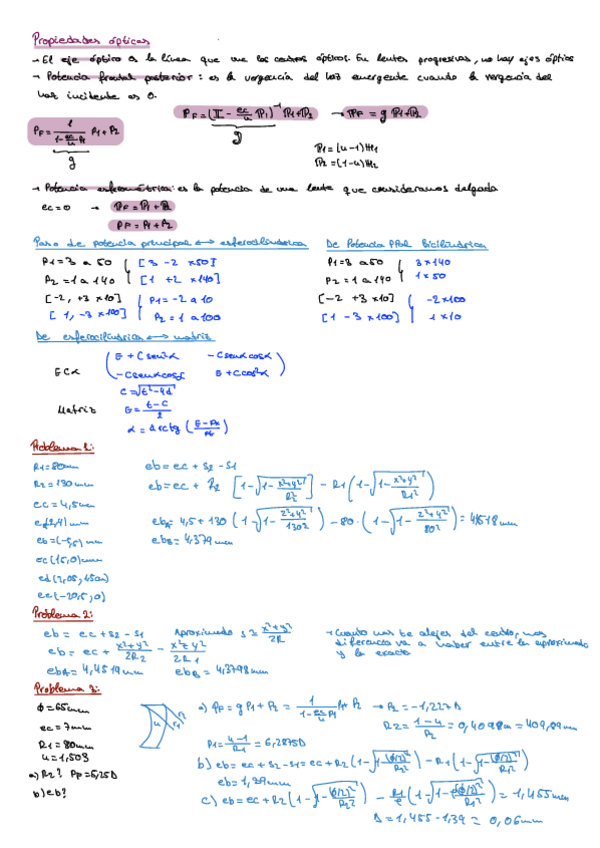 Propiedades ópticas
→ El eje óptico es la línea que une los centros ópticos. En lentes progresivas, no hay ejes ópticos
→ Potencia frontal posterior: es la vergencia del haz emergente cuando la vergencia del
haz incidente es 0.
P_F = 1/(1 - ec/n P1) P1 + P2
g
ℙ_F = (𝕀 - ec/n ℙ1)^-1 ℙ1 + ℙ2 → ℙ_F = g ℙ1 + ℙ2
g
ℙ1 = (n-1)ℍ1
ℙ2 = (1-n)ℍ2
→ Potencia esferométrica: es la potencia de una lente que consideramos delgada
ec = 0 → ℙ_F = ℙ1 + ℙ2
P_F = P1 + P2
Paso de potencia principal ↔ esferocilíndrica
P1 = 3 a 50 [3 -2 x50]
P2 = 1 a 140 [1 +2 x140]
[-2, +3 x10] P1 = -2 a 10
[1, -3 x100] P2 = 1 a 100
De Potencia PPal Bicilíndrica
P1 = 3 a 50 3x140
P2 = 1 a 140 1x50
[-2 +3 x10] -2x100
[1 -3 x100] 1x10
De esferocilíndrica ↔ matriz
E C α
E + C sen²α - C senα cosα
- C senα cosα E + C cos²α
Matriz
C = √(t² - 4d)
E = (t - C)/2
Problema 1:
R1 = 80mm
R2 = 130mm
ec = 4,5mm
eb = ec + s2 - s1
eb = ec + R2 [1 - √(1 - (x²+y²)/R2²)] - R1 (1 - √(1 - (x²+y²)/R1²))
eb_A = 4,5 + 130 (1 - √(1 - (2²+4²)/130²)) - 80 · (1 - √(1 - (2²+4²)/80²)) = 4,4518 mm
eb_B = 4,379 mm
Problema 2:
eb = ec + s2 - s1 Aproximado s ≃ (x²+y²)/2R
eb = ec + (x²+y²)/2R2 - (x²+y²)/2R1
eb_A = 4,4519mm eb_B = 4,3798mm
→ Cuanto más te alejes del centro, más
diferencia va a haber entre la aproximada
y la exacta
Problema 3:
ϕ = 65mm
ec = 7mm
R1 = 80mm
n = 1,503
a) R2? P_F = 5,25D
b) eb?
a) P_F = g P1 + P2 = 1/(1 - ec/n P1) P1 + P2 → P2 = -1,227D
R2 = (1-n)/P2 = 0,4098m = 409,89mm
P1 = (n-1)/R1 = 6,2875D
b) eb = ec + s2 - s1 = ec + R2 (1 - √(1 - (ϕ/2)²/R2²)) - R1 (1 - √(1 - (ϕ/2)²/R1²))
eb = 1,39mm
Δ = 1,455 - 1,39 = 0,06mm